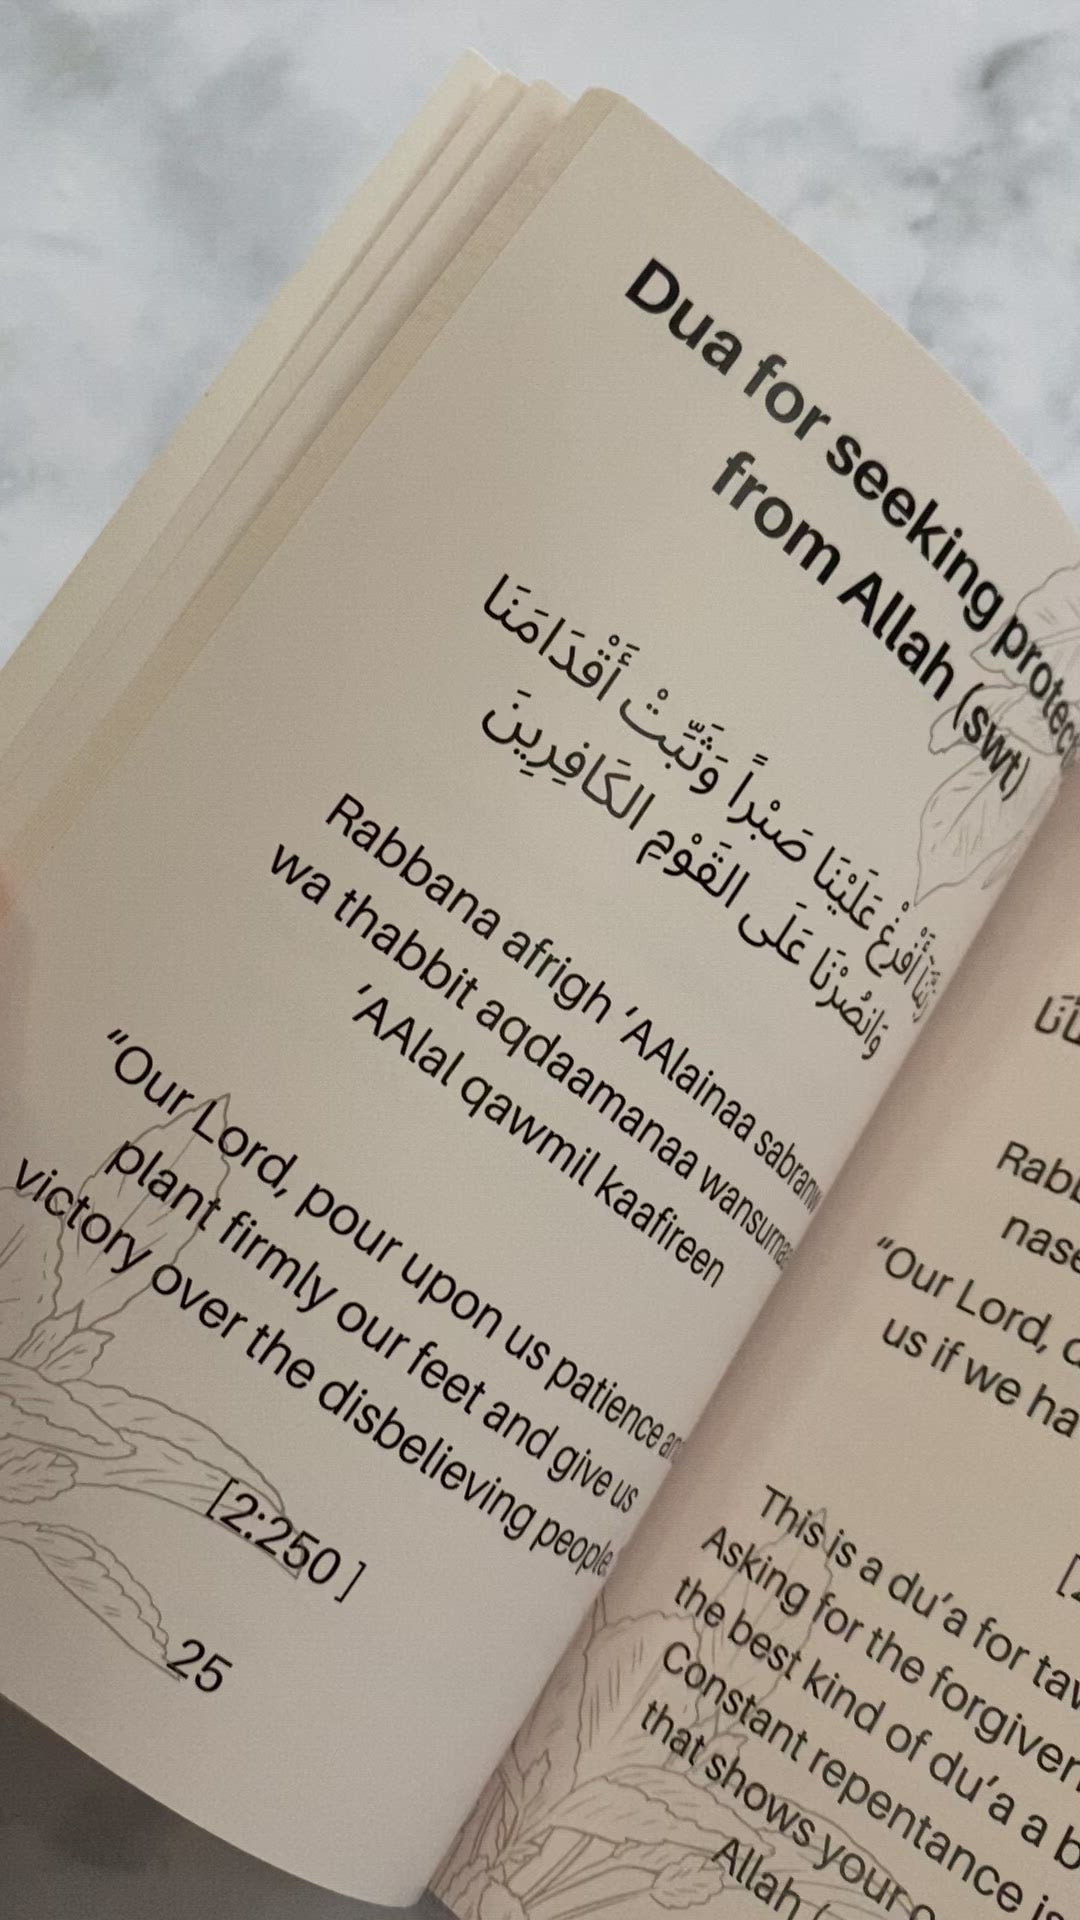 Dua for seeking
from Allah (swt)
رَبَّنَا أَفْرِغْ عَلَيْنَا صَبْراً وَثَبِّتْ أَقْدَامَنَا
وَانصُرْنَا عَلَى القَوْمِ الكَافِرِينَ
Rabbana afrigh ‘AAlainaa
wa thabbit aqdaamanaa
‘AAlal qawmil kaafireen
“Our Lord, pour upon us patience
plant firmly our feet and give us
victory over the disbelieving people
[2:250 ]
25
“Our Lord,
us if we
This is a du’a for
Asking for the
the best kind of du’a a
Constant repentance
that shows your
Allah (